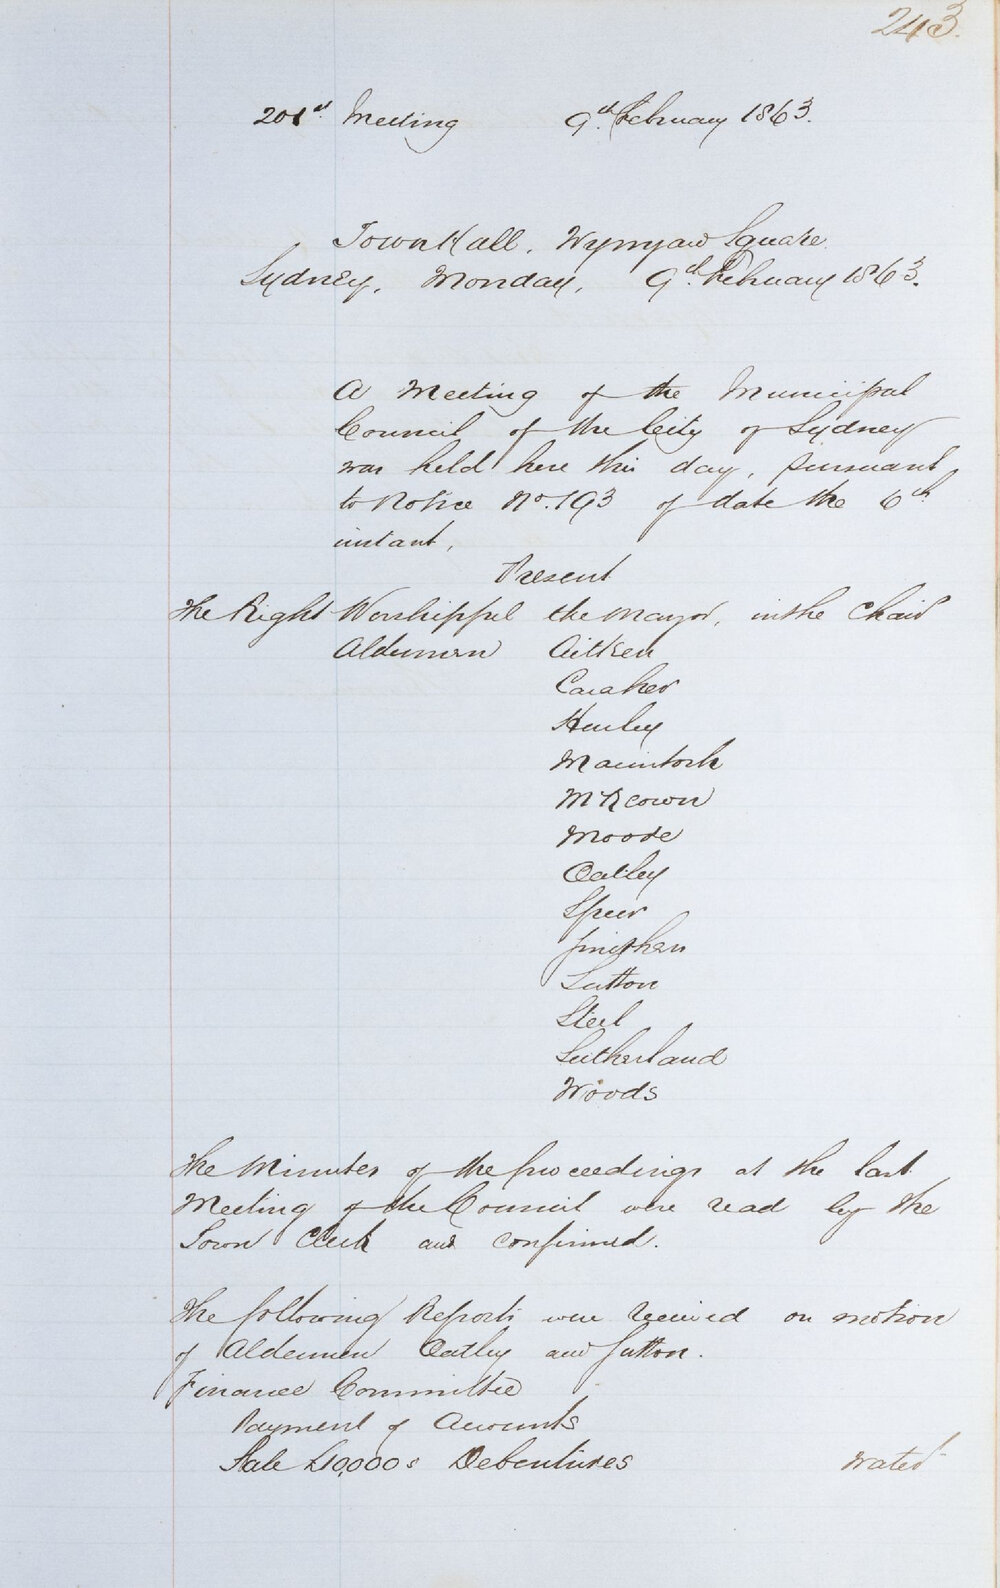 243.
201st Meeting 9th February 1863.
Town Hall, Wynyard Square
Sydney, Monday, 9th February 1863.
A Meeting of the Municipal
Council of the City of Sydney
was held here this day, pursuant
to Notice No. 193 of date the 6th
instant,
Present
The Right Worshipful the Mayor, in the Chair
Aldermen Aitken
Caraher
Hurley
Macintosh
McKeown
Moore
Oatley
Speer
Smithers
Sutton
Steel
Sutherland
Woods
The Minutes of the proceedings at the last
Meeting of the Council were read by the
Town Clerk and confirmed.
The following Reports were received on motion
of Aldermen Oatley and Sutton.
Finance Committee
Payment of Accounts
Sale £10,000s Debentures
Water